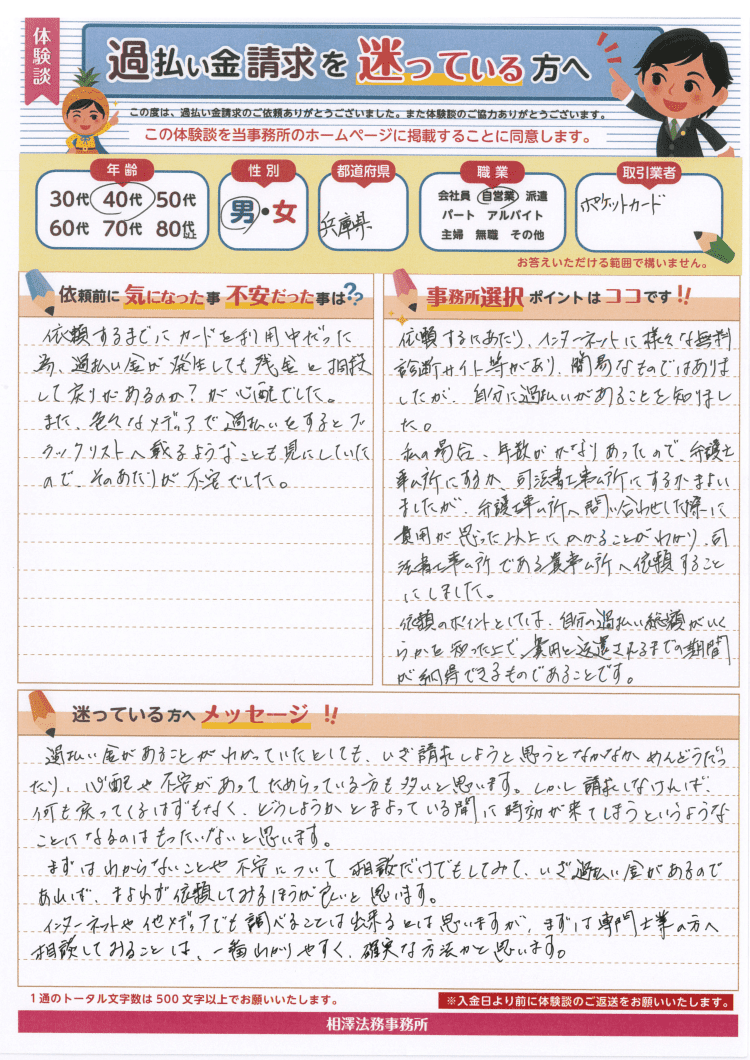 体験談
過払い金請求を迷っている方へ
この度は、過払い金請求のご依頼ありがとうございました。また体験談のご協力ありがとうございます。
この体験談を当事務所のホームページに掲載することに同意します。
年齢
30代 40代 50代
60代 70代 80代以上
性別
男・女
都道府県
兵庫県
職業
会社員 自営業 派遣
パート アルバイト
主婦 無職 その他
取引業者
ポケットカード
お答えいただける範囲で構いません。
依頼前に気になった事不安だった事は??
依頼するまでにカードを利用中だった
為、過払い金が発生しても残金と相殺
して戻りがあるのか?が心配でした。
また、色々なメディアで過払いをするとブ
ラックリストへ載るようなことも見にしていた
ので、そのあたりが不安でした。
事務所選択ポイントはココです!!
依頼するにあたり、インターネットに様々な無料
診断サイト等があり、簡易なものではありま
したが、自分に過払いがあることを知りまし
た。
私の場合、年数がかなりあったので、弁護士
事ム所にするか、司法書士事ム所にするかまよい
ましたが、弁護士事ム所へ問い合わせした際に
費用が思った以上にかかることがわかり、司
法書士事ム所である貴事ム所へ依頼すること
にしました。
依頼のポイントとしては、自分の過払い総額がいく
らかを知った上で、費用と返還されるまでの期間
が納得できるものであることです。
迷っている方へメッセージ!!
過払い金があることがわかっていたとしても、いざ請求しようと思うとなかなかめんどうだっ
たり、心配や不安があってためらっている方も多いと思います。しかし請求しなければ、
何も戻ってくるはずもなく、どうしようかとまよっている間に時効が来てしまうというような
ことになるのはもったいないと思います。
まずはわからないことや不安について相談だけでもしてみて、いざ過払い金があるので
あれば、まよわず依頼してみるほうが良いと思います。
インターネットや他メディアでも調べることは出来るとは思いますが、まずは専門士業の方へ
相談してみることは、一番わかりやすく、確実な方法かと思います。
1通のトータル文字数は500文字以上でお願いいたします。
※入金日より前に体験談のご返送をお願いいたします。
相澤法務事務所